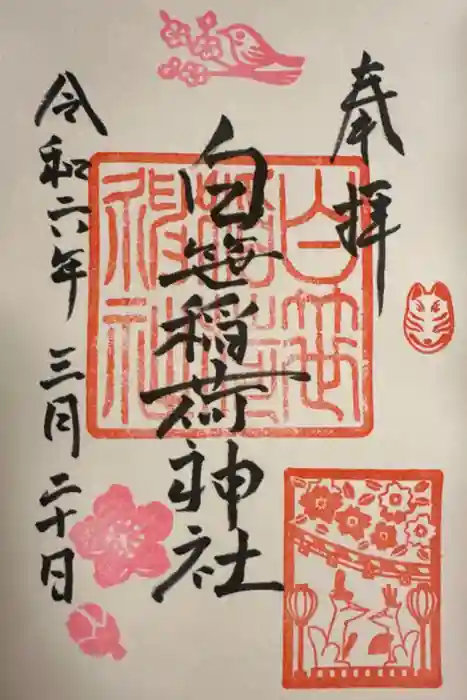 奉拝
白笹稲荷神社
白笹稲荷神社
令和六年三月二十日